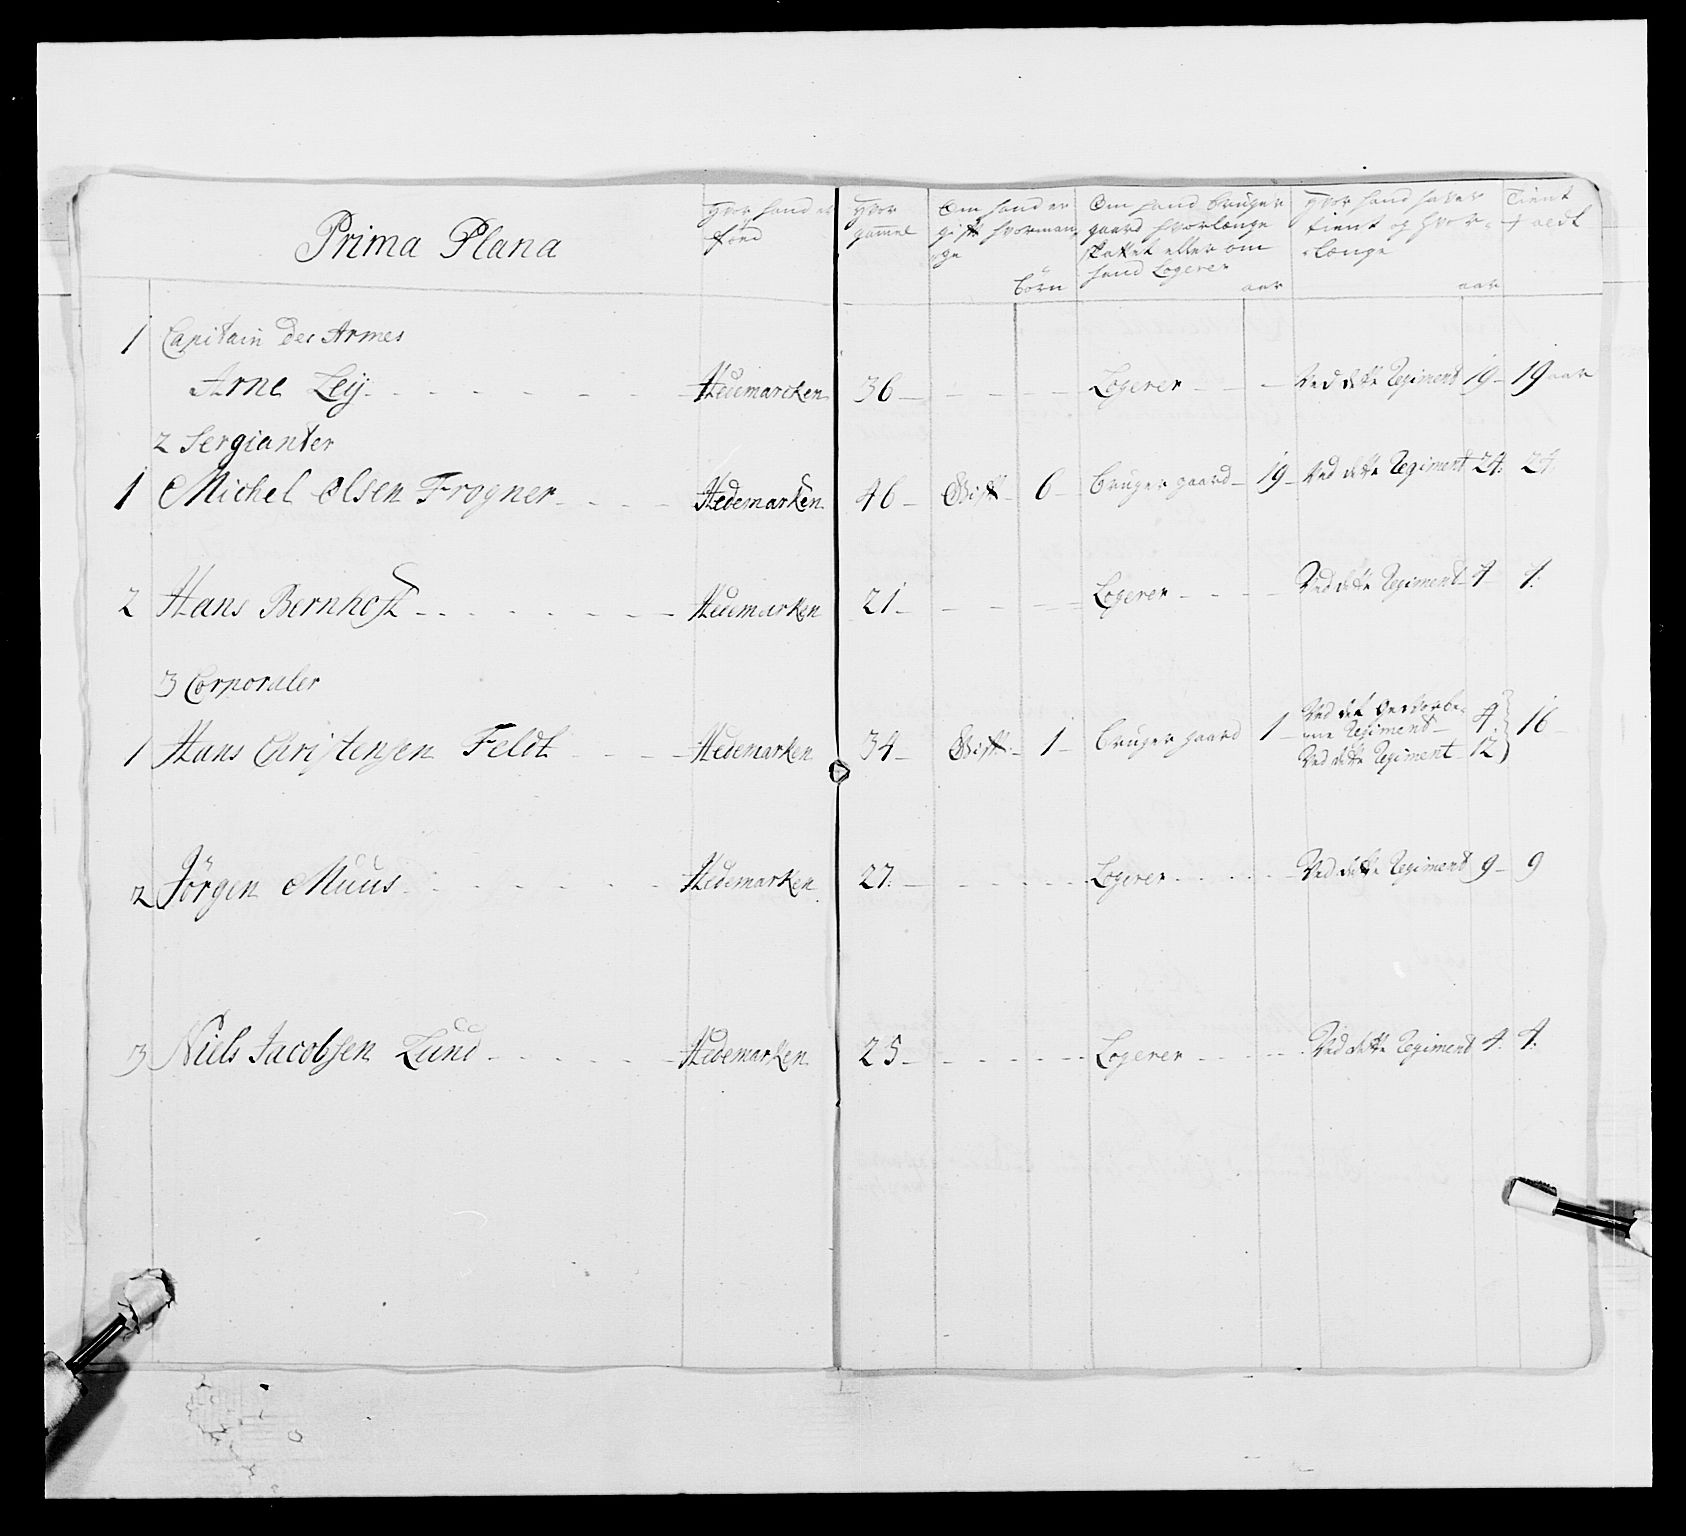 Prima Plana
Hvor hand er
föed
Hvor
gammel
Om hand er
gift hvorman-
ge
börn
Om hand bruger
gaard hvorlænge
skattet eller om
hand Logerer
aar
Hvor hand haver
tient og hvor-
længe
aar
Tient
+ aldt
1 Capitain des Armes
Arne Leij Hedemarcken 36 Logerer Ved dette Regiment 19 19 aar
2 Sergianter
1 Michel Olsen Frogner Hedemarken 46 Gift 6 bruger gaard 19 Ved dette Regiment 24. 24.
2 Hans Bernhoft Hedemarken 21 Logerer Ved dette Regiment 4 4.
3 Corporaler
1 Hans Christensen Feldt Hedemarken 34 Gift 1 bruger gaard 1 Ved det
Regiment 4. 16
Ved dette Regiment 12
2 Jörgen Muus Hedemarken 27. Logerer Ved dette Regiment 9 9
3 Niels Jacobsen Lund Hedemarken 25 Logerer Ved dette Regiment 4. 4.